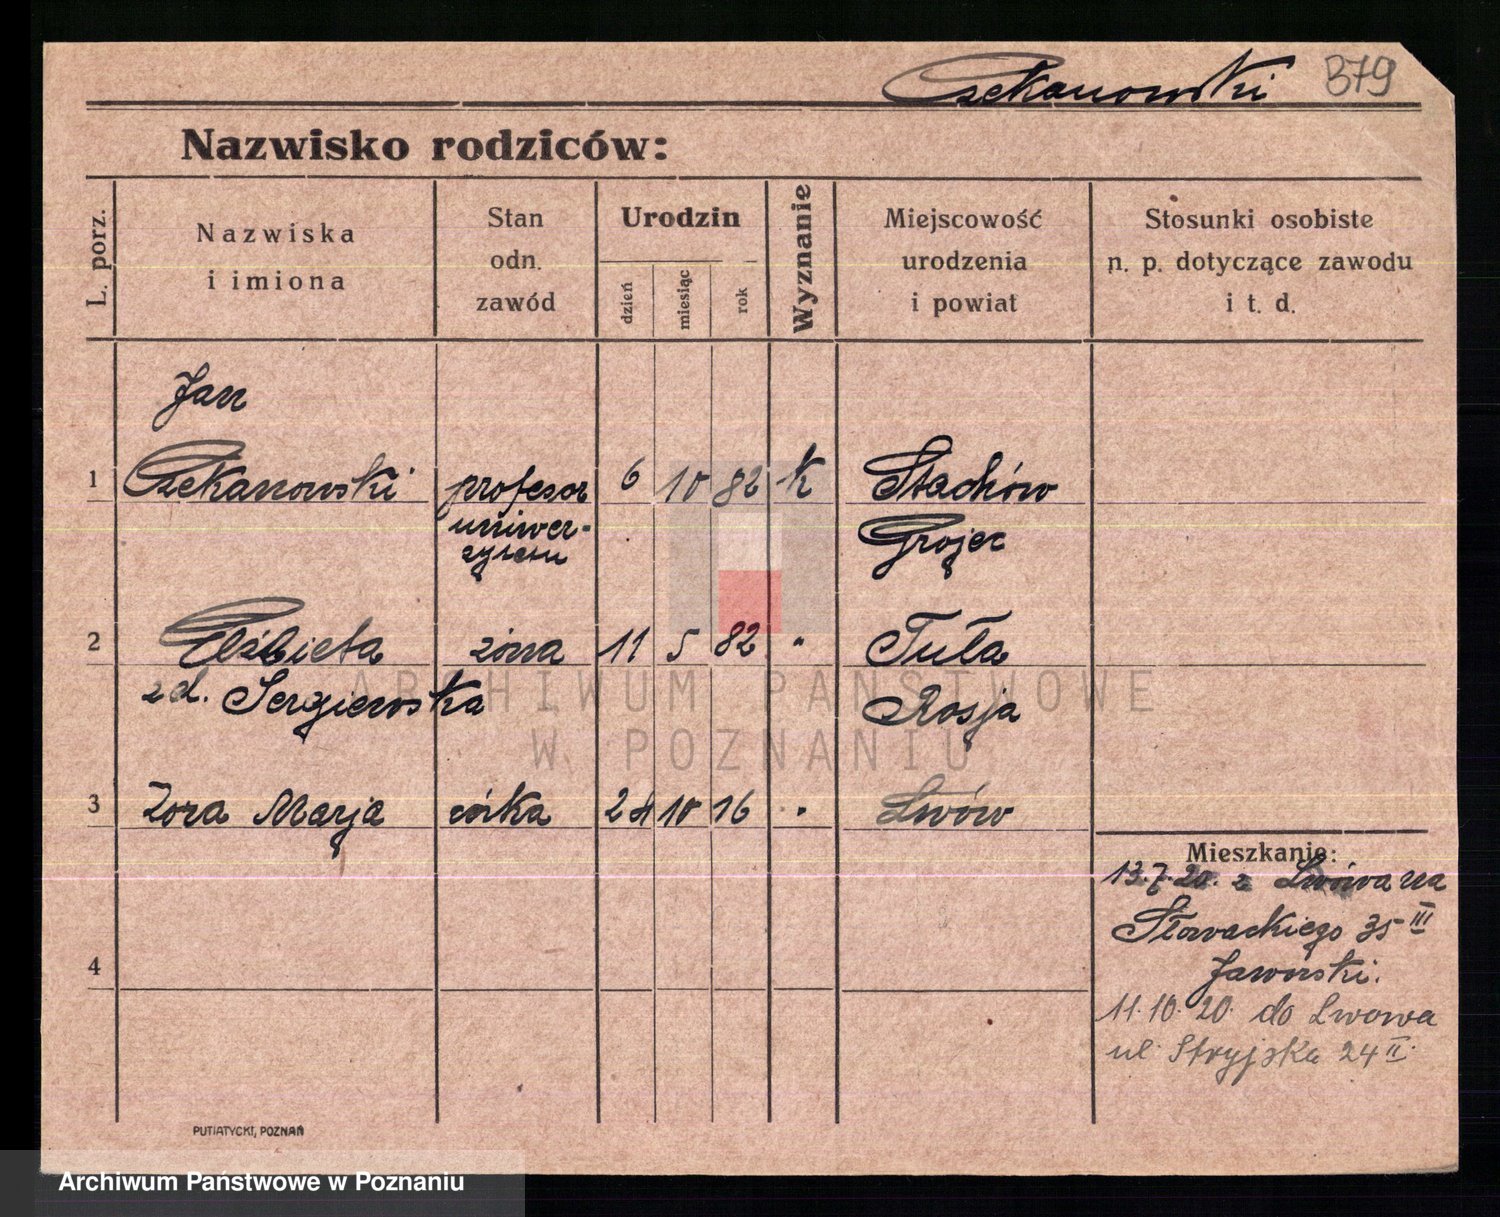 Czekanowski 379
Nazwisko rodziców:
L. porz.
Nazwiska
i imiona
Stan
odn.
zawód
Urodzin
dzień
miesiąc
rok
Wyznanie
Miejscowość
urodzenia
i powiat
Stosunki osobiste
n. p. dotyczące zawodu
i t. d.
Jan
1 Czekanowski profesor 6 10 82 k Stachów
uniwer-
sytetu
Grojec
2 Elżbieta żona 11 5 82 " Tuła
z d. Sergiewska Rosja
3 Zora Marja córka 24 10 16 " Lwów
4
Mieszkanie:
13.7.20. z Lwowa na
Słowackiego 35 III
Jaworski.
11.10.20. do Lwowa
ul. Stryjska 24 II.
PUTIATYCKI, POZNAŃ
ARCHIWUM PAŃSTWOWE
W POZNANIU
Archiwum Państwowe w Poznaniu